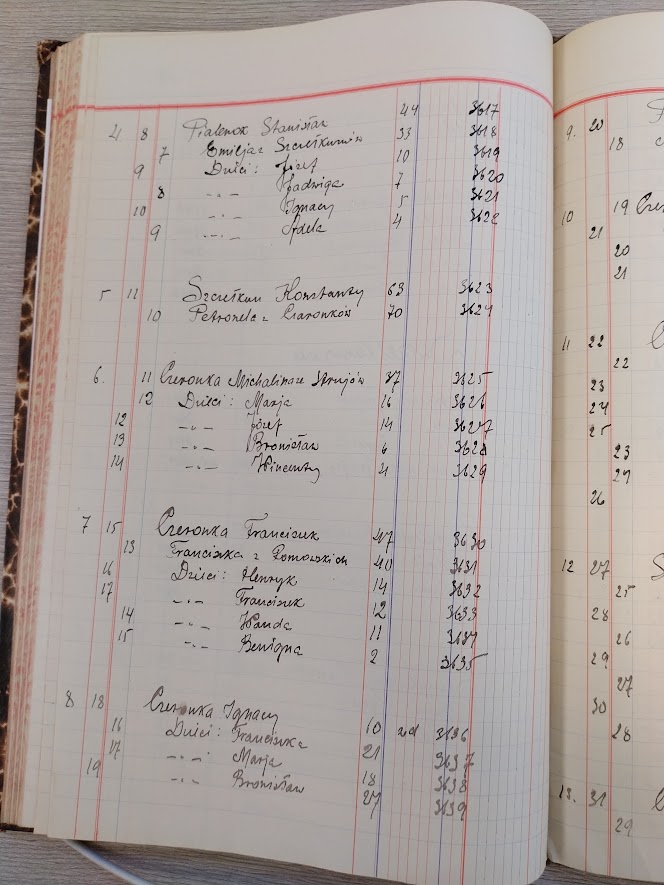 4 8 Pialenok Stanisław 44 3617
7 Emilja z Szczetkunów 33 3618
9 Dzieci: Józef 10 3619
8 -„- Jadwiga 7 3620
10 -„- Ignacy 5 3621
9 -„- Adela 4 3622
5 11 Szczetkun Konstanty 63 3623
10 Petronela z Czeronków 70 3624
6. 11 Czeronka Michalina ze Strujów 37 3625
12 Dzieci: Marja 16 3626
12 -„- Józef 14 3627
13 -„- Bronisław 6 3628
14 -„- Wincenty 4 3629
7 15 Czeronka Franciszek 47 3630
13 Franciszka z 40 3631
16 Dzieci: Henryk 14 3632
17 -„- Franciszek 12 3633
14 -„- Wanda 11 3634
15 -„- Benigna 2 3635
8 18 Czeronka Ignacy 3636
16 Dzieci: Franciszka 21 3637
17 -„- Marja 18 3638
19 -„- Bronisław 27 3639
9. 20
18
10 19
21
20
21
11 22
22
23
24
25
23
24
26
12 27
25
28
26
29
27
30
28
13. 31
29